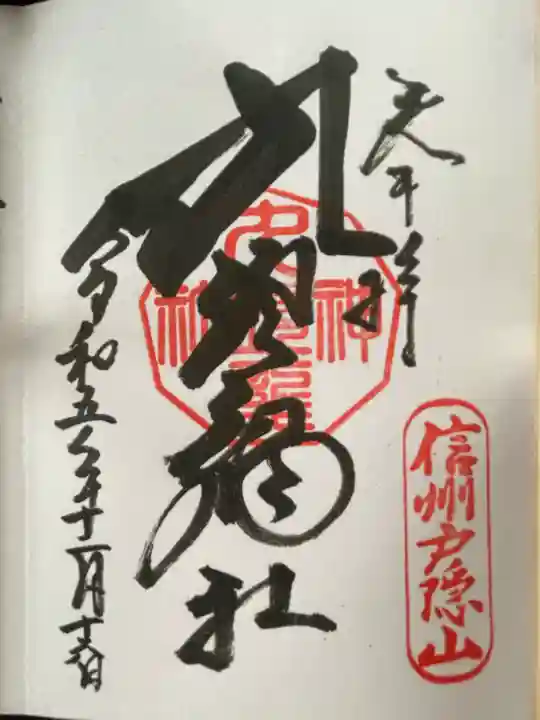 奉拝
九頭龍社
令和五年十一月十六日
信州戸隠山